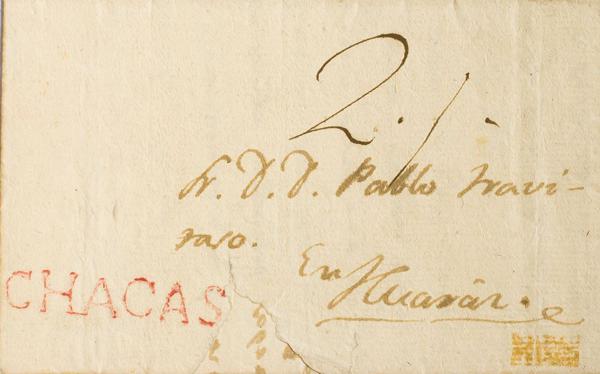 2.
Sr. D. D. Pablo Travi-
raso.
En
Huaráz.
CHACAS